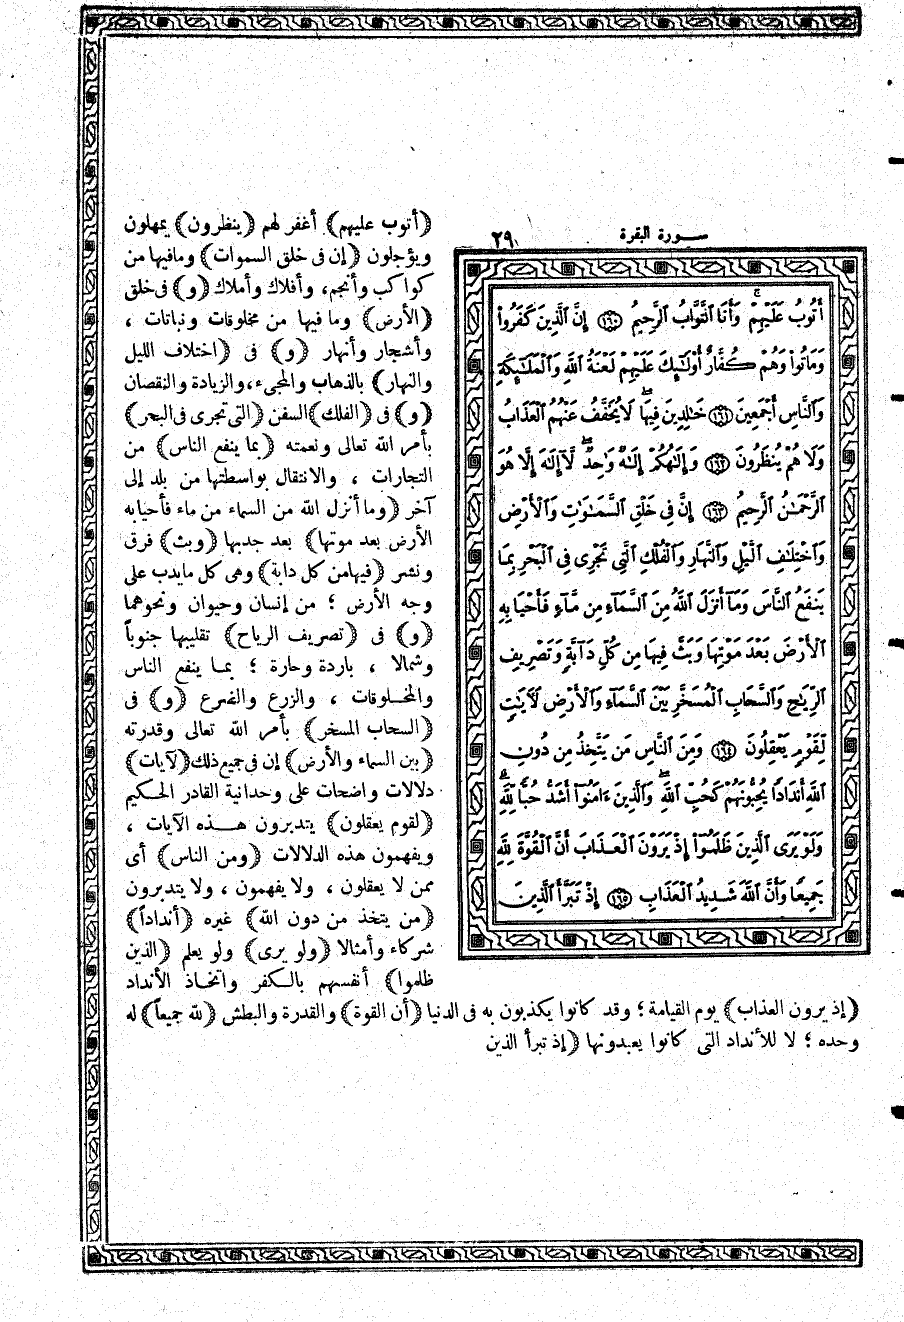 سورة البقرة ٢٩
أَتُوبُ عَلَيْهِمْ وَأَنَا ٱلتَّوَّابُ ٱلرَّحِيمُ ١٦٠ إِنَّ ٱلَّذِينَ كَفَرُوا۟
وَمَاتُوا۟ وَهُمْ كُفَّارٌ أُو۟لَـٰٓئِكَ عَلَيْهِمْ لَعْنَةُ ٱللَّهِ وَٱلْمَلَـٰٓئِكَةِ
وَٱلنَّاسِ أَجْمَعِينَ ١٦١ خَـٰلِدِينَ فِيهَا ۖ لَا يُخَفَّفُ عَنْهُمُ ٱلْعَذَابُ
وَلَا هُمْ يُنظَرُونَ ١٦٢ وَإِلَـٰهُكُمْ إِلَـٰهٌ وَٰحِدٌ ۖ لَّآ إِلَـٰهَ إِلَّا هُوَ
ٱلرَّحْمَـٰنُ ٱلرَّحِيمُ ١٦٣ إِنَّ فِى خَلْقِ ٱلسَّمَـٰوَٰتِ وَٱلْأَرْضِ
وَٱخْتِلَـٰفِ ٱلَّيْلِ وَٱلنَّهَارِ وَٱلْفُلْكِ ٱلَّتِى تَجْرِى فِى ٱلْبَحْرِ بِمَا
يَنفَعُ ٱلنَّاسَ وَمَآ أَنزَلَ ٱللَّهُ مِنَ ٱلسَّمَآءِ مِن مَّآءٍ فَأَحْيَا بِهِ
ٱلْأَرْضَ بَعْدَ مَوْتِهَا وَبَثَّ فِيهَا مِن كُلِّ دَآبَّةٍ وَتَصْرِيفِ
ٱلرِّيَـٰحِ وَٱلسَّحَابِ ٱلْمُسَخَّرِ بَيْنَ ٱلسَّمَآءِ وَٱلْأَرْضِ لَـَٔايَـٰتٍ
لِّقَوْمٍ يَعْقِلُونَ ١٦٤ وَمِنَ ٱلنَّاسِ مَن يَتَّخِذُ مِن دُونِ
ٱللَّهِ أَندَادًا يُحِبُّونَهُمْ كَحُبِّ ٱللَّهِ ۖ وَٱلَّذِينَ ءَامَنُوٓا۟ أَشَدُّ حُبًّا لِّلَّهِ ۗ
وَلَوْ يَرَى ٱلَّذِينَ ظَلَمُوٓا۟ إِذْ يَرَوْنَ ٱلْعَذَابَ أَنَّ ٱلْقُوَّةَ لِلَّهِ
جَمِيعًا وَأَنَّ ٱللَّهَ شَدِيدُ ٱلْعَذَابِ ١٦٥ إِذْ تَبَرَّأَ ٱلَّذِينَ
(أتوب عليهم) أغفر لهم (ينظرون) يمهلون
ويؤجلون (إن فى خلق السموات) ومافيها من
كواكب وأنجم، وأفلاك وأملاك (و) فى خلق
(الأرض) وما فيها من مخلوقات ونباتات ،
وأشجار وأنهار (و) فى (اختلاف الليل
والنهار) بالذهاب والمجىء، والزيادة والنقصان
(و) فى (الفلك) السفن (التى تجرى فى البحر)
بأمر الله تعالى ونعمته (بما ينفع الناس) من
التجارات ، والانتقال بواسطتها من بلد إلى
آخر (وما أنزل الله من السماء من ماء فأحيابه
الأرض بعد موتها) بعد جدبها (وبث) فرق
ونشر (فيها من كل دابة) وهى كل مايدب على
وجه الأرض ؛ من إنسان وحيوان ونحوهما
(و) فى (تصريف الرياح) تقليبها جنوباً
وشمالا ، باردة وحارة ؛ بما ينفع الناس
والمخلوقات ، والزرع والضرع (و) فى
(السحاب المسخر) بأمر الله تعالى وقدرته
(بين السماء والأرض) إن فى جميع ذلك (لآيات)
دلالات واضحات على وحدانية القادر الحكيم
(لقوم يعقلون) يتدبرون هذه الآيات ،
ويفهمون هذه الدلالات (ومن الناس) أى
ممن لا يعقلون ، ولا يفهمون ، ولا يتدبرون
(من يتخذ من دون الله) غيره (أنداداً)
شركاء وأمثالا (ولو يرى) ولو يعلم (الذين
ظلموا) أنفسهم بالكفر واتخاذ الأنداد
(إذ يرون العذاب) يوم القيامة ؛ وقد كانوا يكذبون به فى الدنيا (أن القوة) والقدرة والبطش (لله جميعاً) له
وحده ؛ لا للأنداد التى كانوا يعبدونها (إذ تبرأ الذين